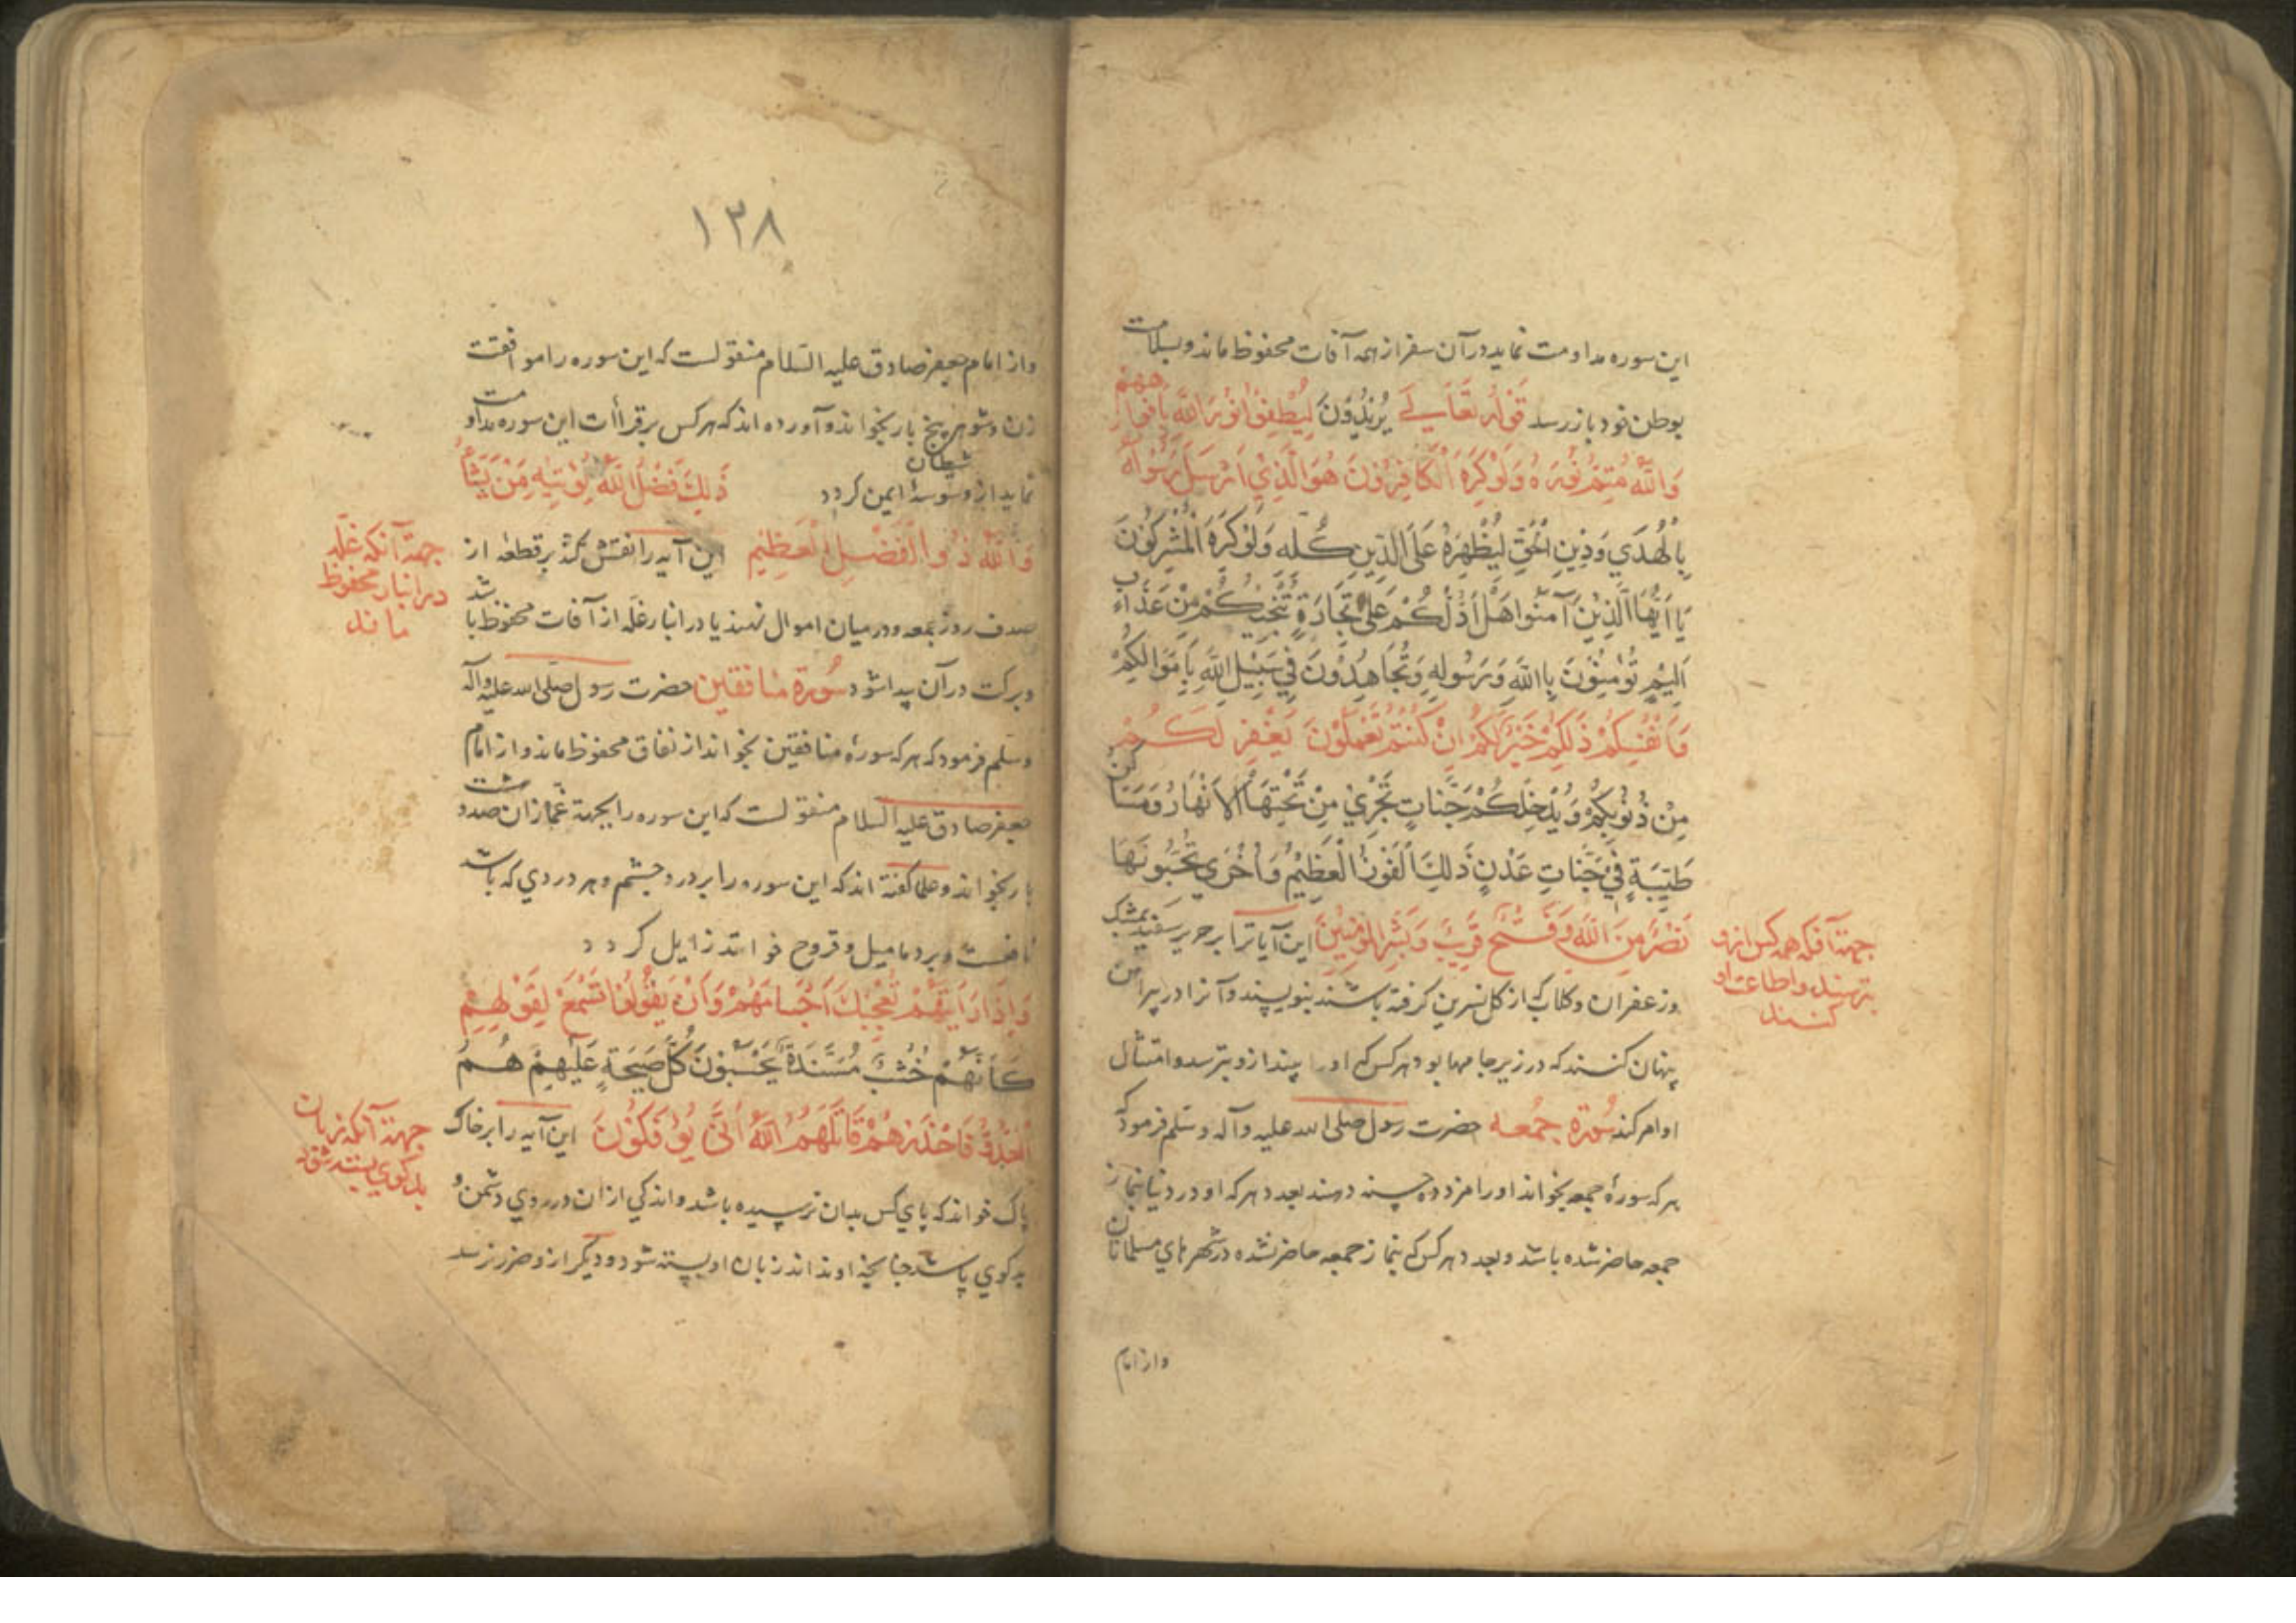 این سوره مداومت نماید در آن سفر از همه آفات محفوظ ماند و بسلامت
بوطن خود باز رسد قَوْلُهُ تَعَالیٰ یُرِیْدُوْنَ لِیُطْفِئُوْا نُوْرَ اللّٰهِ بِاَفْوَاهِهِمْ
وَاللّٰهُ مُتِمُّ نُوْرِهٖ وَلَوْ كَرِهَ الْكَافِرُوْنَ هُوَ الَّذِیْ اَرْسَلَ رَسُوْلَهُ
بِالْهُدَی وَدِیْنِ الْحَقِّ لِیُظْهِرَهُ عَلَی الدِّیْنِ كُلِّهِ وَلَوْ كَرِهَ الْمُشْرِكُوْنَ
یَا اَیُّهَا الَّذِیْنَ آمَنُوا هَلْ اَدُلُّكُمْ عَلٰی تِجَارَةٍ تُنْجِیْكُمْ مِنْ عَذَابٍ
اَلِیْمٍ تُؤْمِنُوْنَ بِاللّٰهِ وَرَسُوْلِهِ وَتُجَاهِدُوْنَ فِیْ سَبِیْلِ اللّٰهِ بِاَمْوَالِكُمْ
وَاَنْفُسِكُمْ ذٰلِكُمْ خَیْرٌ لَكُمْ اِنْ كُنْتُمْ تَعْمَلُوْنَ یَغْفِرْ لَكُمْ
مِنْ ذُنُوْبِكُمْ وَیُدْخِلْكُمْ جَنَّاتٍ تَجْرِیْ مِنْ تَحْتِهَا الْاَنْهَارُ وَمَسَاكِنَ
طَیِّبَةٍ فِیْ جَنَّاتِ عَدْنٍ ذٰلِكَ الْفَوْزُ الْعَظِیْمُ وَاُخْرَی تُحِبُّوْنَهَا
نَصْرٌ مِنَ اللّٰهِ وَفَتْحٌ قَرِیْبٌ وَبَشِّرِ الْمُؤْمِنِیْنَ این آیاترا بر حریر سفید بمشک
وزعفران و کلاب که از کل نسرین کرفته باشند بنویسند و آنرا در پیراهن
پنهان کنند که در زیر جامها بود هر کس که او را بیند ازو بترسد و امتثال
اوامر کند سُورة جمعه حضرت رسول صلی الله علیه وآله وسلم فرمود که
هر که سورۀ جمعه بخواند او را مزد ده حسنه دهند بعدد هر که او در دنیا بنماز
جمعه حاضر شده باشد وبعدد هر کس که بنماز جمعه حاضر نشده در شهرهای مسلمانان
جهة آنکه همه کس ازو
بترسند واطاعت او
کنند
واز امام
۱۳۸
واز امام جعفر صادق علیه السّلام منقولست که این سوره را موافقت
زن وشوهر پنج بار بخواند وآورده اند که هر کس بر قرأات این سوره مداومت
نماید از وسوسۀ شیطان ایمن کردد ذٰلِكَ فَضْلُ اللّٰهِ یُؤْتِیْهِ مَنْ یَشَاُ
وَاللّٰهُ ذُوا الْفَضْلِ الْعَظِیْمِ این آیه را نقش کند بر قطعه از
صدف روز جمعه ودر میان اموال نهند یا در انبار غلّه از آفات محفوظ باشد
وبرکت در آن پیدا شود سُورة منافقین حضرت رسول صلی الله علیه وآله
وسلّم فرمود که هر که سورۀ منافقین بخواند از نفاق محفوظ ماند واز امام
جعفر صادق علیه السلام منقولست که این سوره را بجهة غمّازان صد
بار بخواند وعلما کفته اند که این سوره را بر درد چشم وهر دردی که باشد
وبر دمامیل وقروح خوانند زایل کردد
وَاِذَا رَاَیْتَهُمْ تُعْجِبُكَ اَجْسَامُهُمْ وَاَنْ یَقُوْلُوْا تَسْمَعْ لِقَوْلِهِمْ
كَاَنَّهُمْ خُشُبٌ مُسَنَّدَةٌ یَحْسَبُوْنَ كُلَّ صَیْحَةٍ عَلَیْهِمْ هُمُ
الْعَدُوُّ فَاحْذَرْهُمْ قَاتَلَهُمُ اللّٰهُ اَنّٰی یُؤْفَكُوْنَ این آیه را بر خاک
پاک خواند که پای کس بدان نرسیده باشد واندکی از آن در روی دشمن و
بدکوی پاشد چنانچه او نداند زبان او بسته شود ودیگر ازو ضرر نرسد
جهة آنکه غلّه
در انبار محفوظ
ماند
جهة آنکه زبان
بدکوی بسته شود